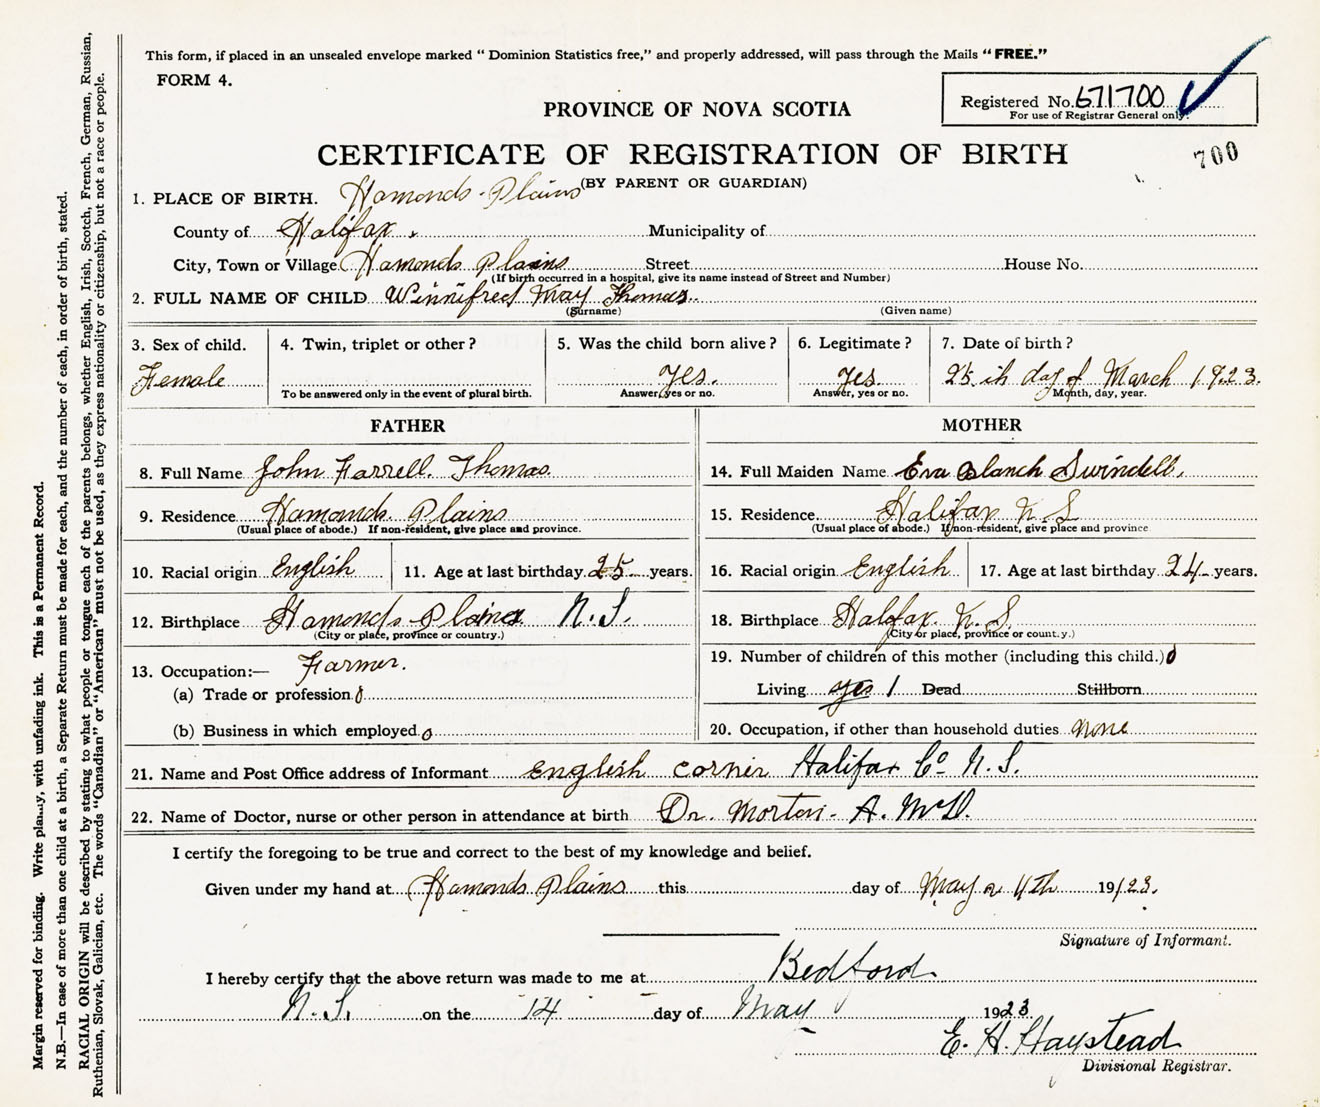 This form, if placed in an unsealed envelope marked “ Dominion Statistics free,” and properly addressed, will pass through the Mails “ FREE.”
FORM 4.
Registered No. 671700
For use of Registrar General only.
PROVINCE OF NOVA SCOTIA
CERTIFICATE OF REGISTRATION OF BIRTH
700
(BY PARENT OR GUARDIAN)
1. PLACE OF BIRTH. Hamonds Plains
County of Halifax Municipality of
City, Town or Village Hamonds Plains Street House No.
(If birth occurred in a hospital, give its name instead of Street and Number)
2. FULL NAME OF CHILD Winnifred May Thomas
(Surname) (Given name)
3. Sex of child. 4. Twin, triplet or other? 5. Was the child born alive? 6. Legitimate? 7. Date of birth?
Female yes. yes 25 th day of March 1923.
To be answered only in the event of plural birth. Answer, yes or no. Answer, yes or no. Month, day, year.
FATHER MOTHER
8. Full Name John Farrell Thomas 14. Full Maiden Name Eva Blanch Swindell
9. Residence Hamonds Plains 15. Residence Halifax N.S
(Usual place of abode.) If non-resident, give place and province. (Usual place of abode.) If non-resident, give place and province
10. Racial origin English 11. Age at last birthday 25 years. 16. Racial origin English 17. Age at last birthday 24 years.
12. Birthplace Hamonds Plains N.S. 18. Birthplace Halafax N.S.
(City or place, province or country.) (City or place, province or count.y.)
13. Occupation:— Farmer. 19. Number of children of this mother (including this child.) 0
(a) Trade or profession 0 Living yes 1 Dead Stillborn
(b) Business in which employed 0 20. Occupation, if other than household duties none
21. Name and Post Office address of Informant English corner Halifax Co N.S.
22. Name of Doctor, nurse or other person in attendance at birth Dr. Morton A. McD.
I certify the foregoing to be true and correct to the best of my knowledge and belief.
Given under my hand at Hamonds Plains this day of May 1923.
Signature of Informant.
I hereby certify that the above return was made to me at Bedford
N.S. on the 14 day of May 1923
E. H. Haystead
Divisional Registrar.
Margin reserved for binding. Write plainly, with unfading ink. This is a Permanent Record.
N.B.—In case of more than one child at a birth, a Separate Return must be made for each, and the number of each, in order of birth, stated.
RACIAL ORIGIN will be described by stating to what people or tongue each of the parents belongs, whether English, Irish, Scotch, French, German, Russian,
Ruthenian, Slovak, Galician, etc. The words “Canadian” or “American” must not be used, as they express nationality or citizenship, but not a race or people.